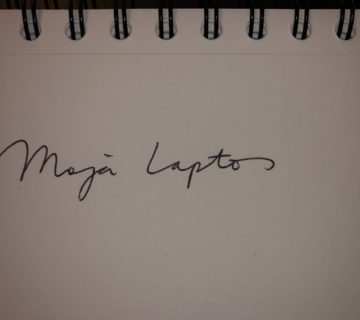 Maja Laptos